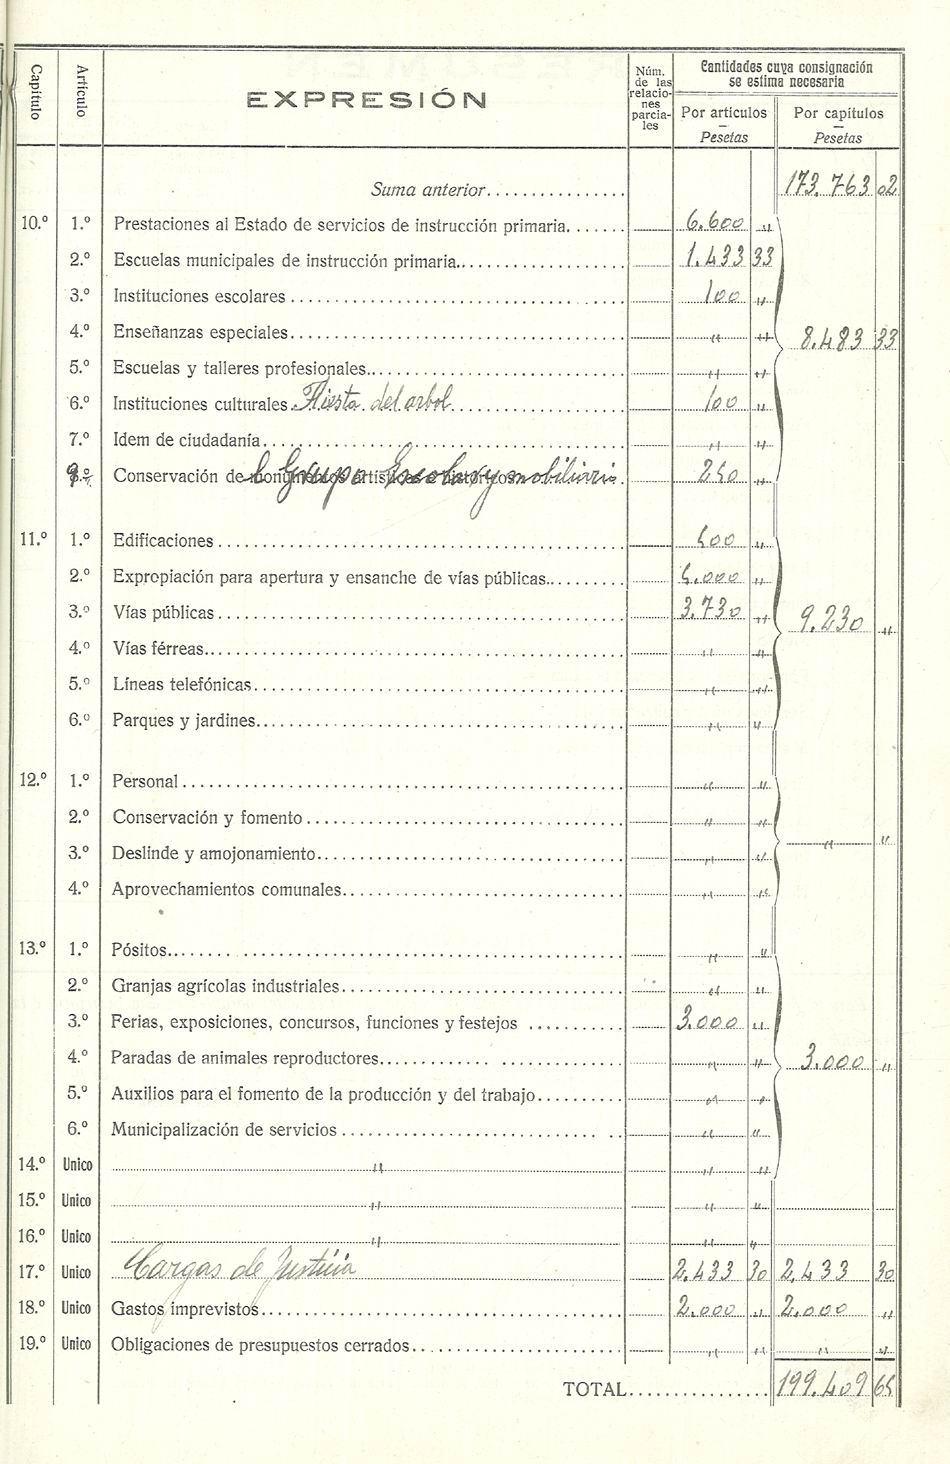 Capítulo
Artículo
EXPRESIÓN
Núm. de las relaciones parciales
Cantidades cuya consignación se estima necesaria
Por artículos — Pesetas
Por capítulos — Pesetas
Suma anterior 173.763 02
10.º 1.º Prestaciones al Estado de servicios de instrucción primaria 6.600 "
2.º Escuelas municipales de instrucción primaria 1.433 33
3.º Instituciones escolares 100 "
4.º Enseñanzas especiales " " 8.483 33
5.º Escuelas y talleres profesionales " "
6.º Instituciones culturales Fiesta del arbol 100 "
7.º Idem de ciudadanía " "
Conservación del Grupo Escolar y mobiliario 250 "
11.º 1.º Edificaciones 500 "
2.º Expropiación para apertura y ensanche de vías públicas 5.000 "
3.º Vías públicas 3.730 " 9.230 "
4.º Vías férreas " "
5.º Líneas telefónicas " "
6.º Parques y jardines " "
12.º 1.º Personal " "
2.º Conservación y fomento " "
3.º Deslinde y amojonamiento " " " "
4.º Aprovechamientos comunales " "
13.º 1.º Pósitos " "
2.º Granjas agrícolas industriales " "
3.º Ferias, exposiciones, concursos, funciones y festejos 3.000 "
4.º Paradas de animales reproductores " " 3.000 "
5.º Auxilios para el fomento de la producción y del trabajo " "
6.º Municipalización de servicios " "
14.º Unico " " "
15.º Unico " " "
16.º Unico " " "
17.º Unico Cargas de Justicia 2.433 30 2.433 30
18.º Unico Gastos imprevistos 2.000 " 2.000 "
19.º Unico Obligaciones de presupuestos cerrados " " " "
TOTAL 199.409 65